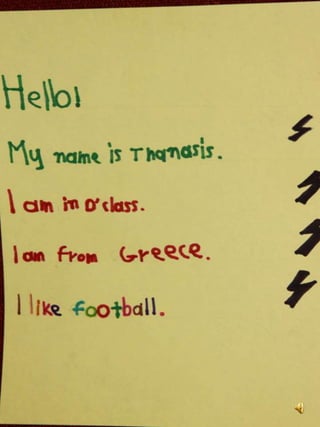 Hello!
My name is Thanasis.
I am in D'class.
I am from Greece.
I like football.